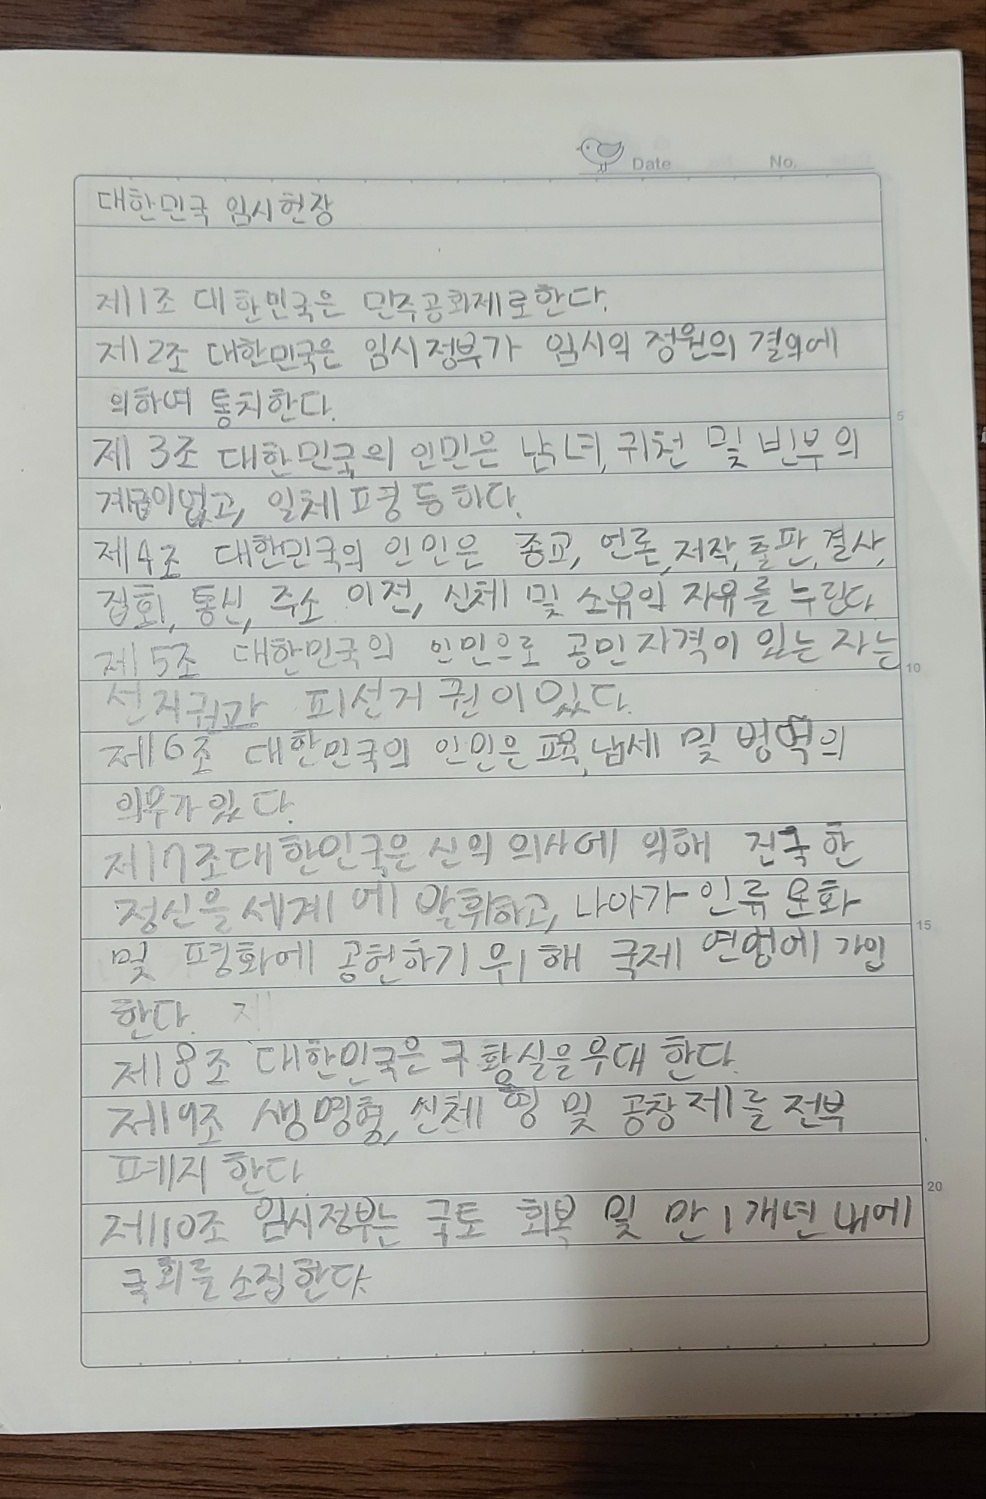 Date No.
대한민국 임시헌장
제1조 대한민국은 민주공화제로한다.
제2조 대한민국은 임시정부가 임시의 정원의 결의에
의하여 통치한다.
5
제3조 대한민국의 인민은 남녀, 귀천 및 빈부의
계급이없고, 일체 평등하다.
제4조 대한민국의 인민은 종교, 언론, 저작, 출판, 결사,
집회, 통신, 주소 이전, 신체 및 소유의 자유를 누린다
제5조 대한민국의 인민으로 공민자격이 있는 자는
10
선거권과 피선거권이있다.
제6조 대한민국의 인민은 교육, 납세 및 병역의
의무가 있다.
제7조 대한민국은 신의 의사에 의해 건국한
정신을 세계에 발휘하고, 나아가 인류 문화
15
및 평화에 공헌하기 위해 국제 연맹에 가입
한다.
제8조 대한민국은 구 황실을 우대 한다.
제9조 생명형, 신체형 및 공창제를 전부
폐지 한다
20
제10조 임시정부는 국토 회복 및 만1개년 내에
국회를 소집한다.